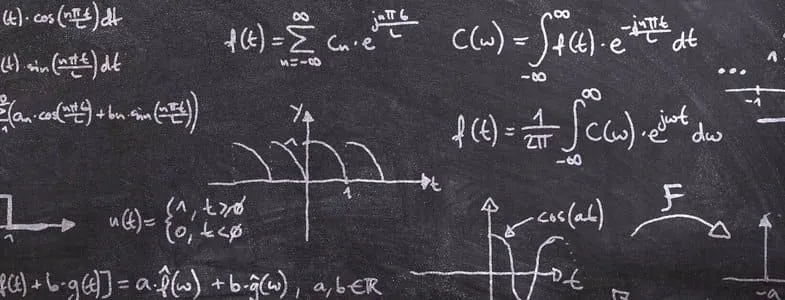 (t)·cos(nπt/L)dt
(t)·sin(nπt/L)dt
(an·cos(nπt/L)+bn·sin(nπt/L))
f(t)=∑ n=-∞ ∞ Cn·e^(jnπt/L)
C(w)=∫ -∞ ∞ f(t)·e^(-jnπt/L) dt
f(t)=1/2π ∫ -∞ ∞ C(w)·e^(jwt) dw
... -1 1
y 1 1 t
1
u(t)={1, t≥0
0, t<0
cos(at) t
F
-a
f(t)+b·g(t)]=a·f̂(w)+b·ĝ(w), a,b∈ℝ